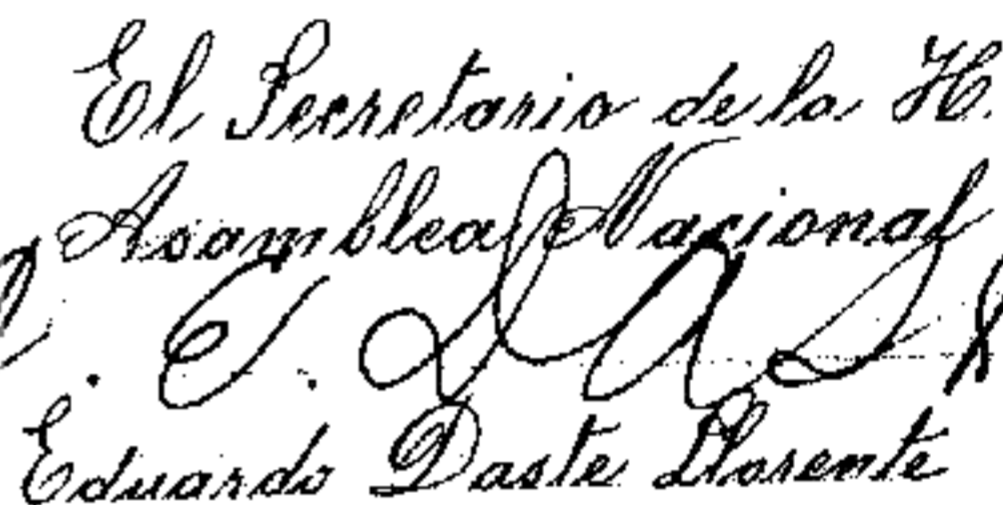 El Secretario de la H.
Asamblea Nacional
Eduardo Daste Llorente